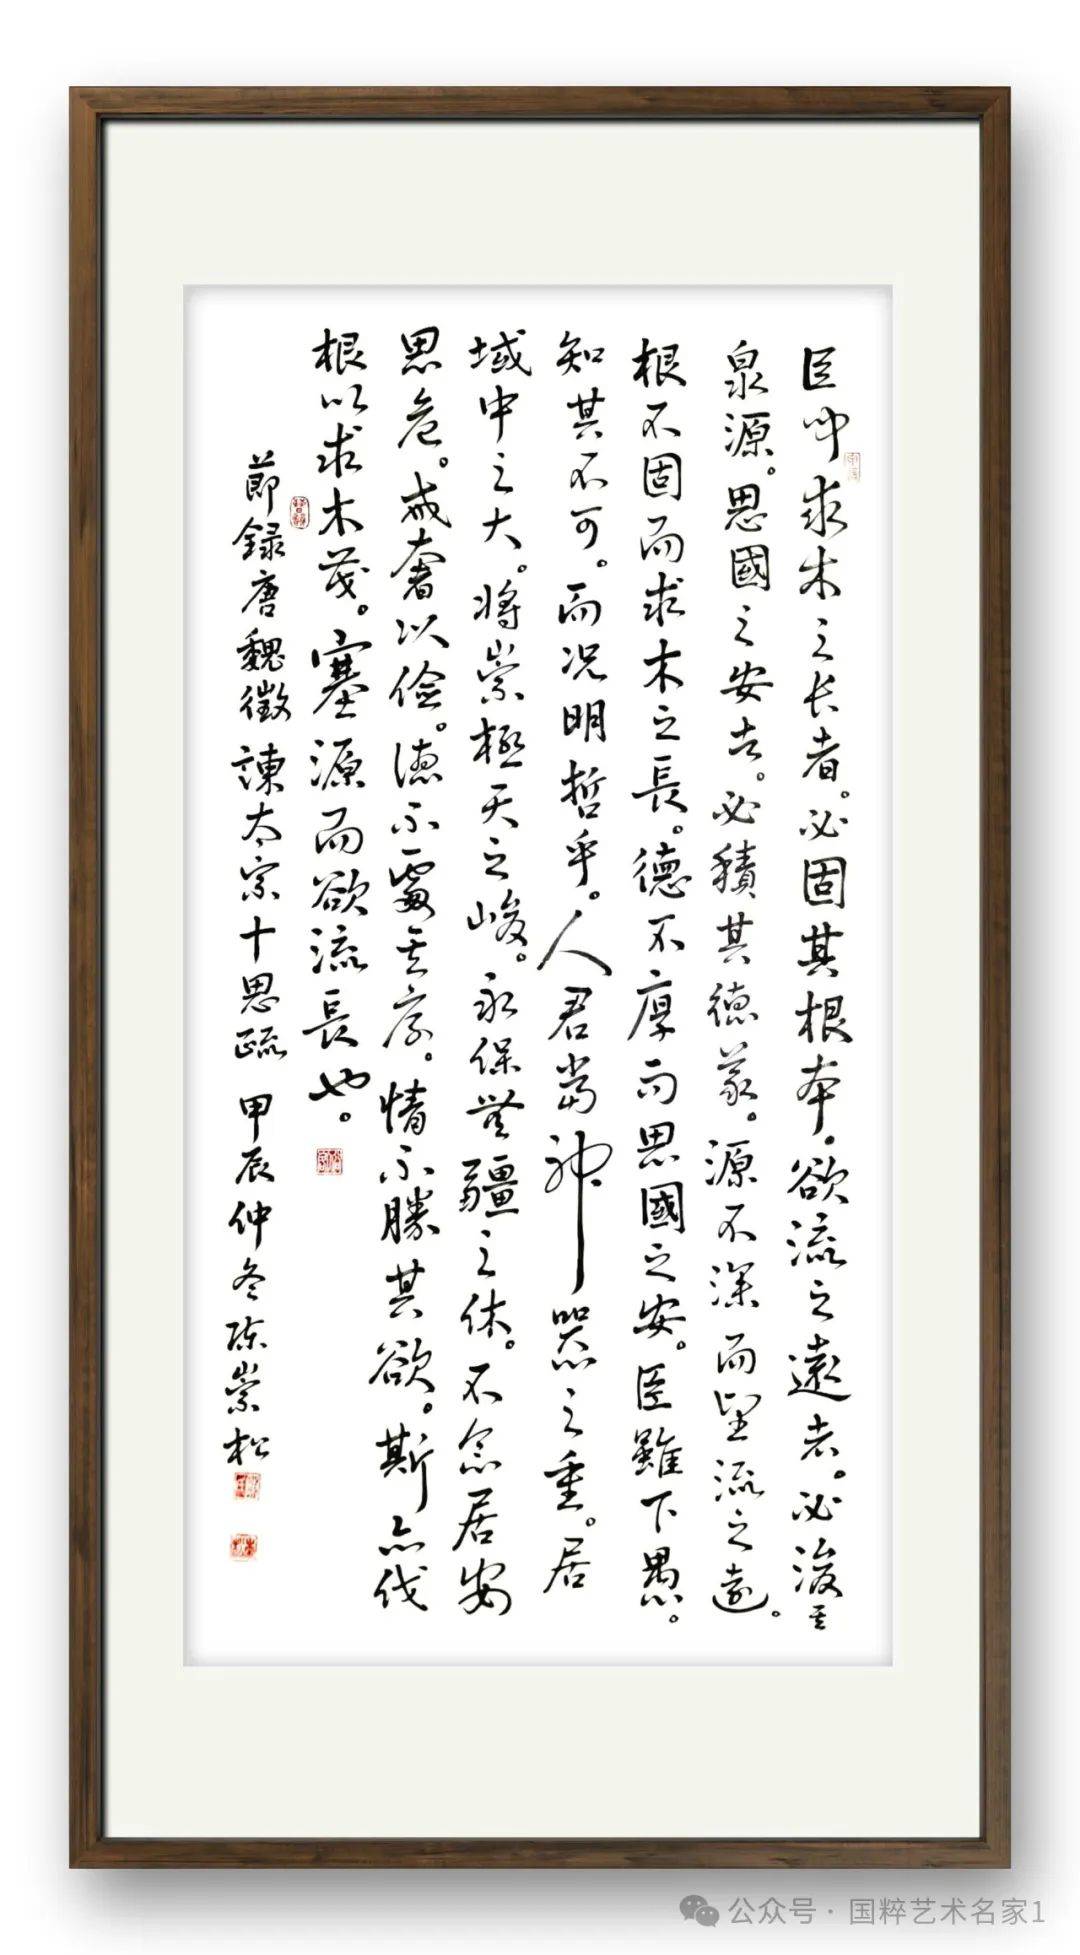 臣聞求木之长者。必固其根本。欲流之遠者。必浚其
泉源。思國之安者。必積其德義。源不深而望流之遠。
根不固而求木之長。德不厚而思國之安。臣雖下愚。
知其不可。而况明哲乎。人君當神器之重。居
域中之大。将崇極天之峻。永保無疆之休。不念居安
思危。戒奢以儉。德不處其厚。情不勝其欲。斯亦伐
根以求木茂。塞源而欲流長也。
節録唐魏徵諫太宗十思疏 甲辰仲冬陈崇松
公众号·国粹艺术名家1